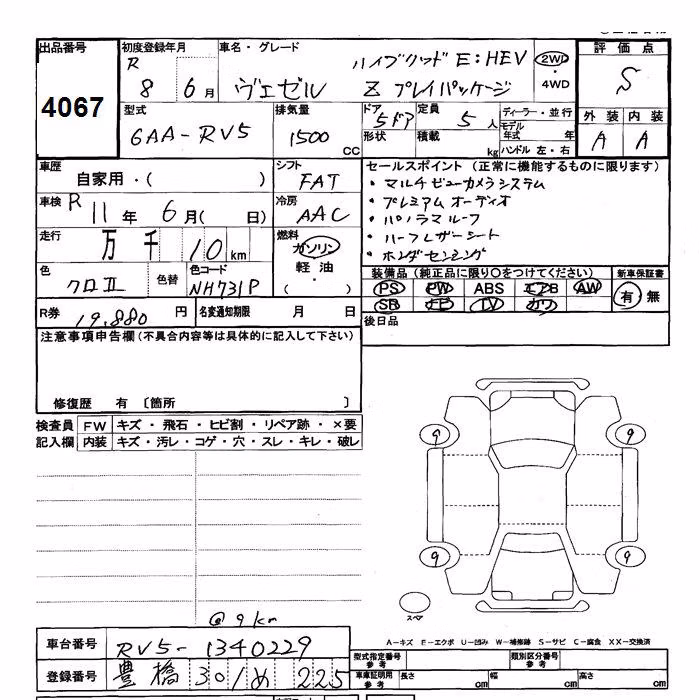 出品番号
4067
初度登録年月
R 8 6月
車名・グレード
ハイブリッド E:HEV
ヴェゼル Z プレイパッケージ
2WD
・
4WD
評価点
S
外装 内装
A A
型式
6AA-RV5
排気量
1500 CC
ドア
5ドア
形状
定員
5人
積載
kg
ディーラー・並行
モデル年式 年
ハンドル 左・右
車歴
自家用・( )
シフト
FAT
車検
R 11年 6月( 日)
冷房
AAC
走行
万 千 10 km
燃料
ガソリン
軽油
( ・ )
色
クロⅡ
色替
色コード
NH731P
R券
19,880 円
名変通知期限 月 日
セールスポイント (正常に機能するものに限ります)
・マルチビューカメラシステム
・プレミアムオーディオ
・パノラマルーフ
・ハーフレザーシート
・ホンダセンシング
装備品(純正品に限り○をつけてください)
PS PW ABS エアB AW
SR ナビ TV カワ
新車保証書
有 無
後日品
注意事項申告欄(不具合内容等は具体的に記入して下さい)
修復歴 有 〔箇所 〕
検査員記入欄
FW キズ・飛石・ヒビ割・リペア跡・×要
内装 キズ・汚レ・コゲ・穴・スレ・キレ・破レ
9 9
9 9
スペア
@9km
A-キズ E-エクボ U-凹み W-補修跡 S-サビ C-腐食 XX-交換済
車台番号
RV5-1340229
登録番号
豊橋 301 め 225
型式指定番号
参考
類別区分番号
参考
車庫証明用
参考
長さ cm 幅 cm 高さ cm